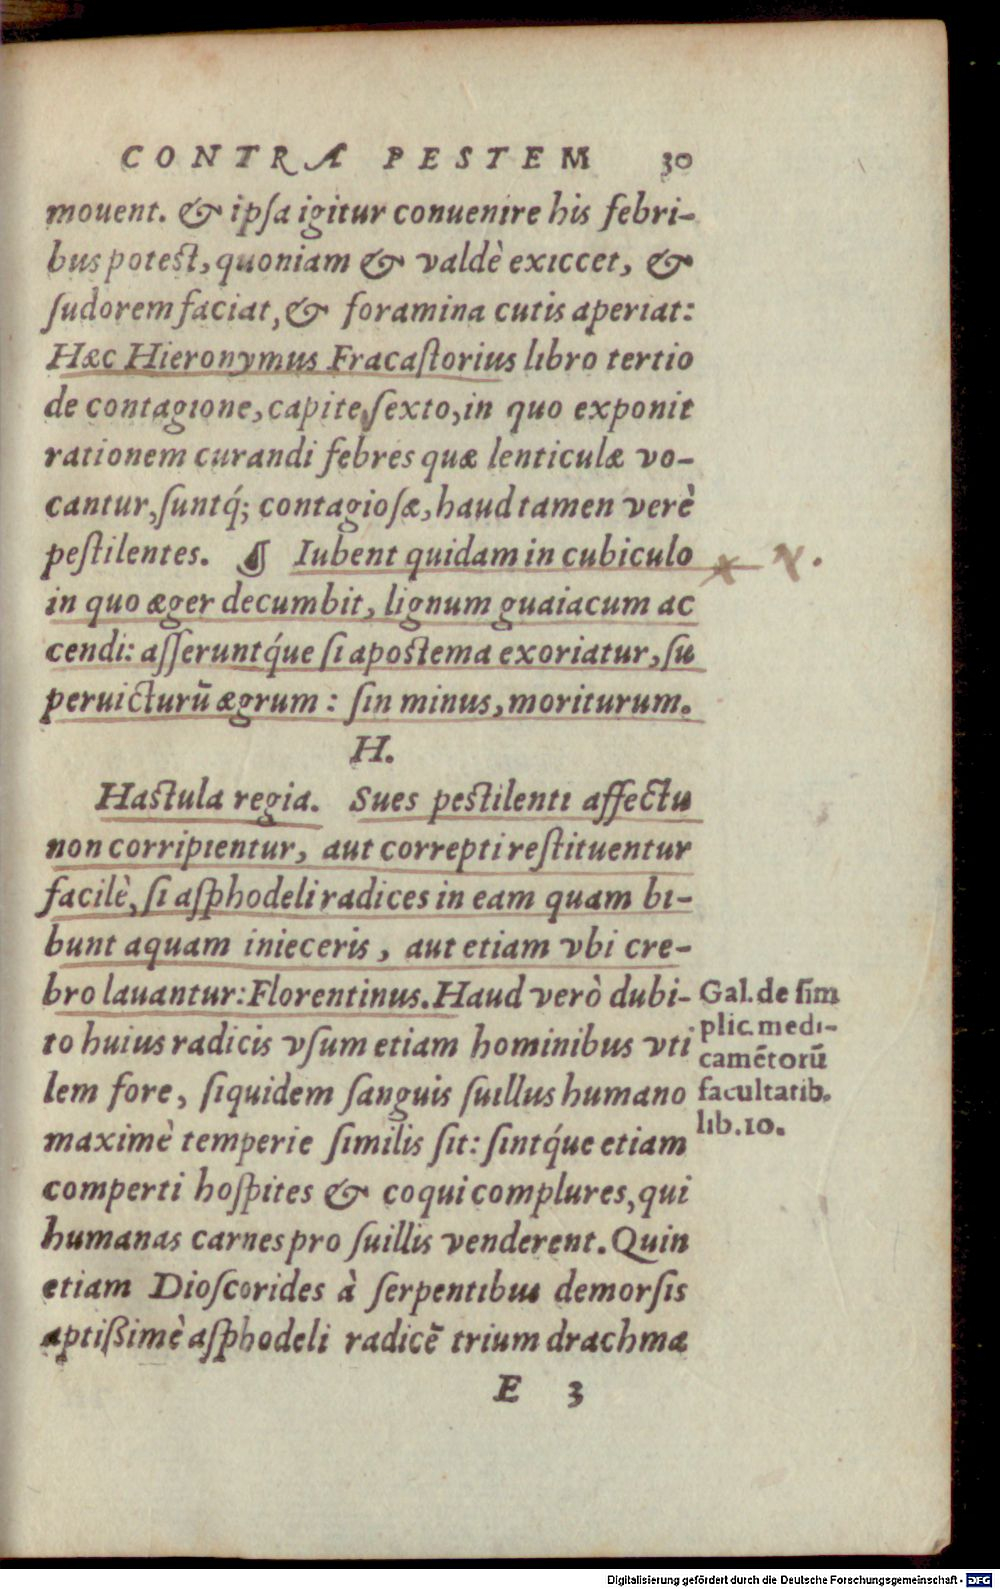 CONTRA PESTEM 30
mouent. & ipſa igitur conuenire his febri-
bus poteſt, quoniam & valdè exiccet, &
ſudorem faciat, & foramina cutis aperiat:
Hæc Hieronymus Fracaſtorius libro tertio
de contagione, capite ſexto, in quo exponit
rationem curandi febres quæ lenticulæ vo-
cantur, ſuntq́; contagioſæ, haud tamen verè
peſtilentes. ¶ Iubent quidam in cubiculo
in quo æger decumbit, lignum guaiacum ac
cendi: aſſeruntq́ue ſi apoſtema exoriatur, ſu
peruicturū ægrum: ſin minus, moriturum.
H.
Haſtula regia. Sues peſtilenti affectu
non corripientur, aut correpti reſtituentur
facilè, ſi aſphodeli radices in eam quam bi-
bunt aquam inieceris, aut etiam vbi cre-
bro lauantur: Florentinus. Haud verò dubi-
to huius radicis vſum etiam hominibus vti
lem fore, ſiquidem ſanguis ſuillus humano
maximè temperie ſimilis ſit: ſintq́ue etiam
comperti hoſpites & coqui complures, qui
humanas carnes pro ſuillis venderent. Quin
etiam Dioſcorides à ſerpentibus demorſis
aptißimè aſphodeli radicē trium drachmæ
Gal. de ſim
plic. medi-
camētorū
facultatib.
lib. 10.
E 3
Digitalisierung gefördert durch die Deutsche Forschungsgemeinschaft - DFG